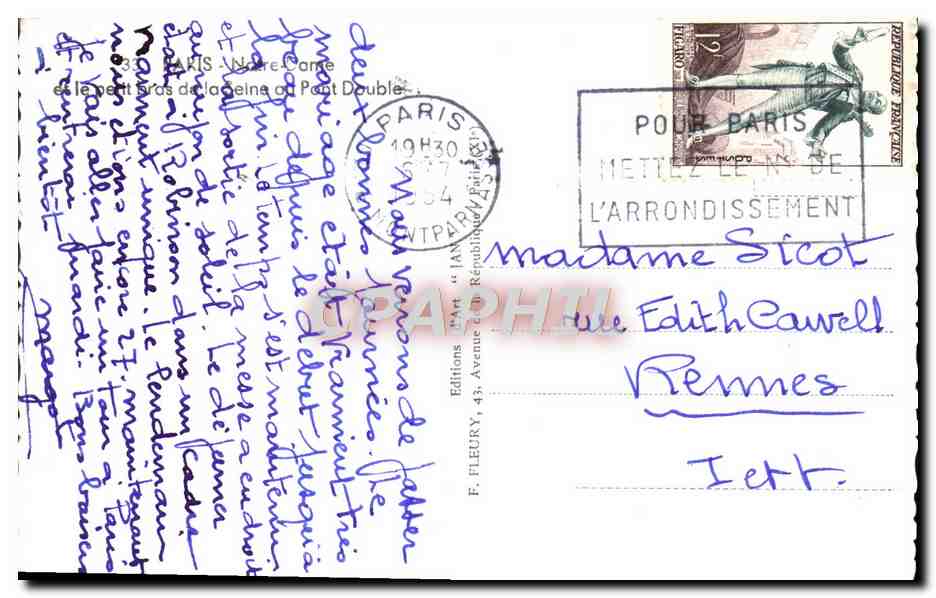 33 PARIS - Notre-Dame
et le petit bras de la Seine au Pont Double
Nous venons de passer
deux bonnes journées. Le
mariage était vraiment très
beau depuis le début jusqu'à
la fin. le temps s'est maintenu
et la sortie de la messe a eu droit
au rayon de soleil. Le déjeuner
était à Robinson dans un cadre
vraiment unique. Le lendemain
nous étions encore 27. maintenant
je vais aller faire un tour à Paris
et rentrerai mardi. Bons baisers
à bientôt
Margot
Editions d'Art "
F. FLEURY, 43, Avenue de la République, Paris (XIe)
PARIS
19H30
7
1954
MONTPARNASSE
POUR PARIS
METTEZ LE N° DE
L'ARRONDISSEMENT
REPUBLIQUE FRANÇAISE
12F
FIGARO
CPAPHIL
madame Sicot
rue Edith Cawell
Rennes
I et V.